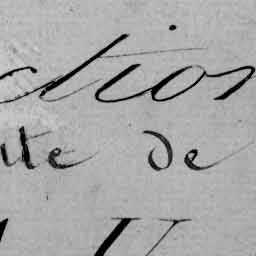 ction
ite de